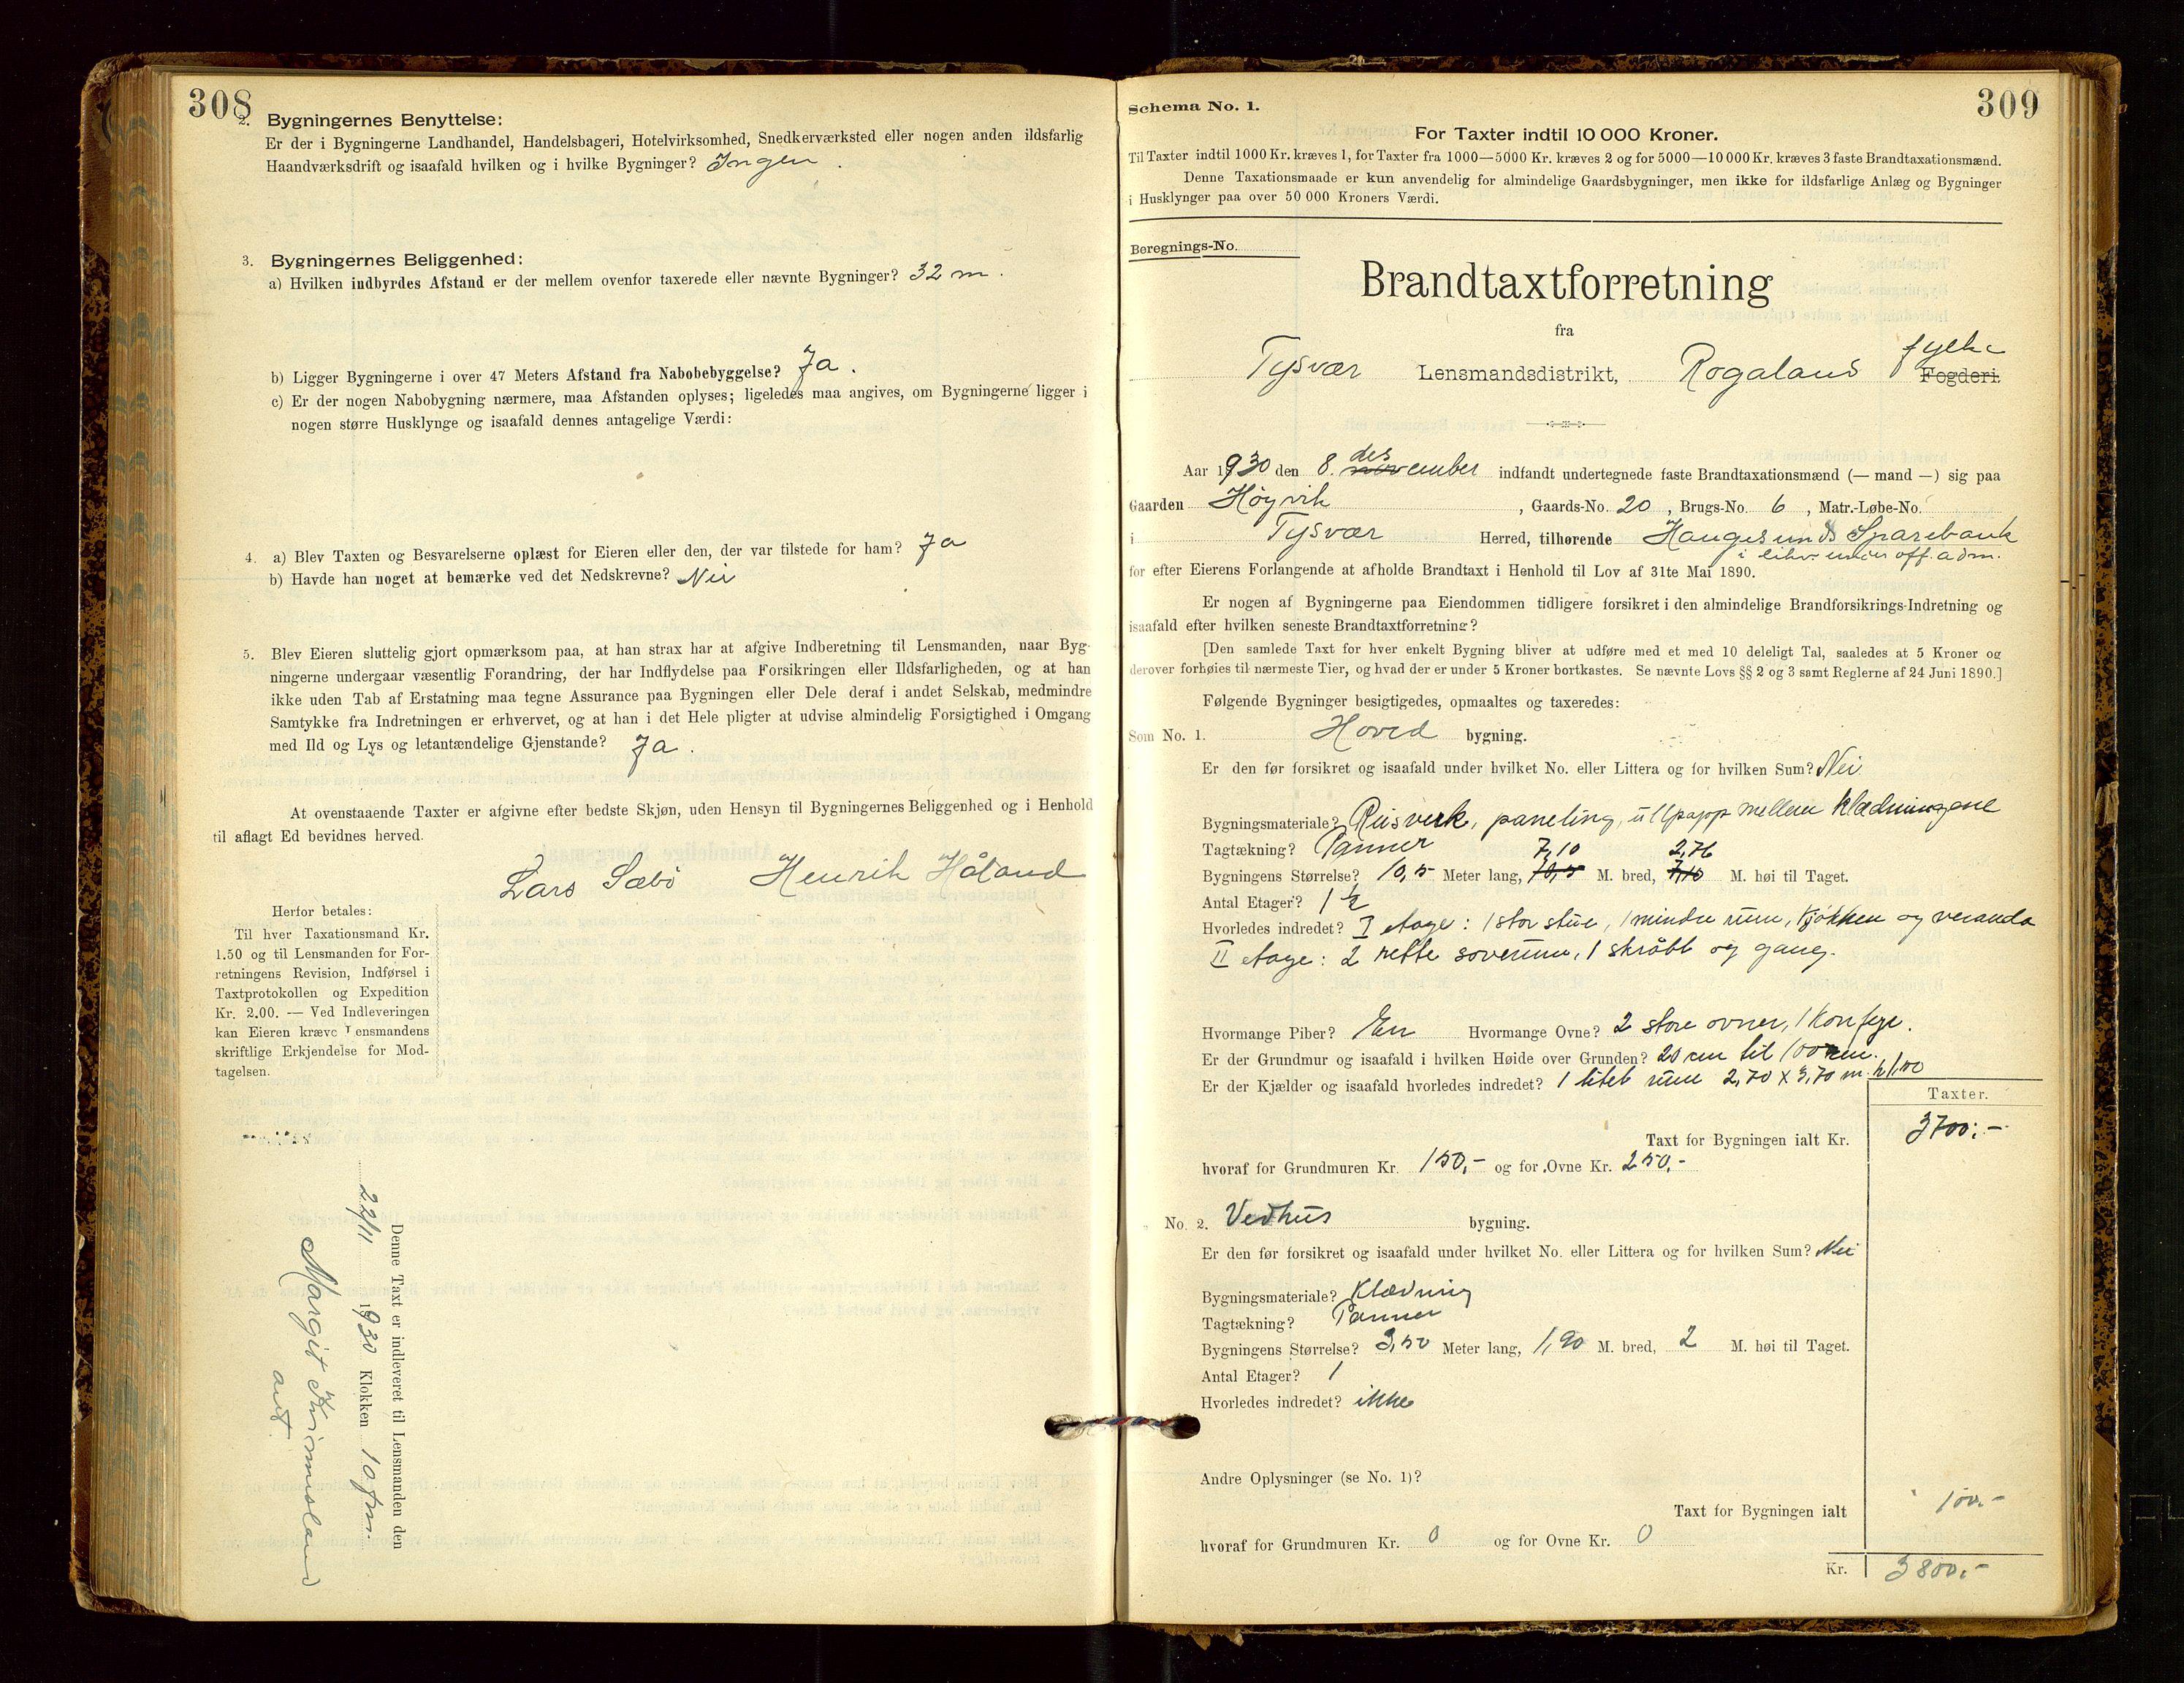 308
2. Bygningernes Benyttelse:
Er der i Bygningerne Landhandel, Handelsbageri, Hotelvirksomhed, Snedkerværksted eller nogen anden ildsfarlig
Haandværksdrift og isaafald hvilken og i hvilke Bygninger? Ingen.
3. Bygningernes Beliggenhed:
a) Hvilken indbyrdes Afstand er der mellem ovenfor taxerede eller nævnte Bygninger? 32 m.
b) Ligger Bygningerne i over 47 Meters Afstand fra Nabobebyggelse? Ja.
c) Er der nogen Nabobygning nærmere, maa Afstanden oplyses; ligeledes maa angives, om Bygningerne ligger i
nogen større Husklynge og isaafald dennes antagelige Værdi:
4. a) Blev Taxten og Besvarelserne oplæst for Eieren eller den, der var tilstede for ham? Ja
b) Havde han noget at bemærke ved det Nedskrevne? Nei
5. Blev Eieren sluttelig gjort opmærksom paa, at han strax har at afgive Indberetning til Lensmanden, naar Byg-
ningerne undergaar væsentlig Forandring, der har Indflydelse paa Forsikringen eller Ildsfarligheden, og at han
ikke uden Tab af Erstatning maa tegne Assurance paa Bygningen eller Dele deraf i andet Selskab, medmindre
Samtykke fra Indretningen er erhvervet, og at han i det Hele pligter at udvise almindelig Forsigtighed i Omgang
med Ild og Lys og letantændelige Gjenstande? Ja.
At ovenstaaende Taxter er afgivne efter bedste Skjøn, uden Hensyn til Bygningernes Beliggenhed og i Henhold
til aflagt Ed bevidnes herved.
Lars Sæbö Henrik Håland
Herfor betales:
Til hver Taxationsmand Kr.
1.50 og til Lensmanden for For-
retningens Revision, Indførsel i
Taxtprotokollen og Expedition
Kr. 2.00. — Ved Indleveringen
kan Eieren kræve Lensmandens
skriftlige Erkjendelse for Mod-
tagelsen.
Denne Taxt er indleveret til Lensmanden den
22/11 1930 Klokken 10 fm.
Margit
309
Schema No. 1.
For Taxter indtil 10 000 Kroner.
Til Taxter indtil 1000 Kr. kræves 1, for Taxter fra 1000—5000 Kr. kræves 2 og for 5000—10 000 Kr. kræves 3 faste Brandtaxationsmænd.
Denne Taxationsmaade er kun anvendelig for almindelige Gaardsbygninger, men ikke for ildsfarlige Anlæg og Bygninger
i Husklynger paa over 50 000 Kroners Værdi.
Beregnings-No.
Brandtaxtforretning
fra
Tysvær Lensmandsdistrikt, Rogaland fylke Fogderi.
Aar 1930 den 8. des november indfandt undertegnede faste Brandtaxationsmænd (— mand —) sig paa
Gaarden Höyvik, Gaards-No. 20, Brugs-No. 6, Matr.-Løbe-No.
i Tysvær Herred, tilhørende Haugesunds Sparebank
i likv. under off. adm.
for efter Eierens Forlangende at afholde Brandtaxt i Henhold til Lov af 31te Mai 1890.
Er nogen af Bygningerne paa Eiendommen tidligere forsikret i den almindelige Brandforsikrings-Indretning og
isaafald efter hvilken seneste Brandtaxtforretning?
[Den samlede Taxt for hver enkelt Bygning bliver at udføre med et med 10 deleligt Tal, saaledes at 5 Kroner og
derover forhøies til nærmeste Tier, og hvad der er under 5 Kroner bortkastes. Se nævnte Lovs §§ 2 og 3 samt Reglerne af 24 Juni 1890.]
Følgende Bygninger besigtigedes, opmaaltes og taxeredes:
Som No. 1. Hoved bygning.
Er den før forsikret og isaafald under hvilket No. eller Littera og for hvilken Sum? Nei
Bygningsmateriale? Reisverk, paneling, ullpapp mellem klædningene
Tagtækning? Panner
7,10 2,76
Bygningens Størrelse? 10,5 Meter lang, 10,5 M. bred, 7,10 M. høi til Taget.
Antal Etager? 1 ½
Hvorledes indredet? I etage: 1 stor stue, 1 mindre rum, kjökken og veranda
II etage: 2 rette soverum, 1 skråbt og gang.
Hvormange Piber? En Hvormange Ovne? 2 store ovner, 1 komfyr.
Er der Grundmur og isaafald i hvilken Høide over Grunden? 20 cm til 100 cm.
Er der Kjælder og isaafald hvorledes indredet? 1 litet rum 2,70 x 3,70 m. h 1,80
Taxter.
Taxt for Bygningen ialt Kr. 3700:-
hvoraf for Grundmuren Kr. 150,- og for Ovne Kr. 250,-
No. 2. Vedhus bygning.
Er den før forsikret og isaafald under hvilket No. eller Littera og for hvilken Sum? Nei
Bygningsmateriale? Klædning
Tagtækning? Panner
Bygningens Størrelse? 3,50 Meter lang, 1,90 M. bred, 2 M. høi til Taget.
Antal Etager? 1
Hvorledes indredet? ikke
Andre Oplysninger (se No. 1)?
Taxt for Bygningen ialt 100.-
hvoraf for Grundmuren Kr. 0 og for Ovne Kr. 0
Kr. 3800.-